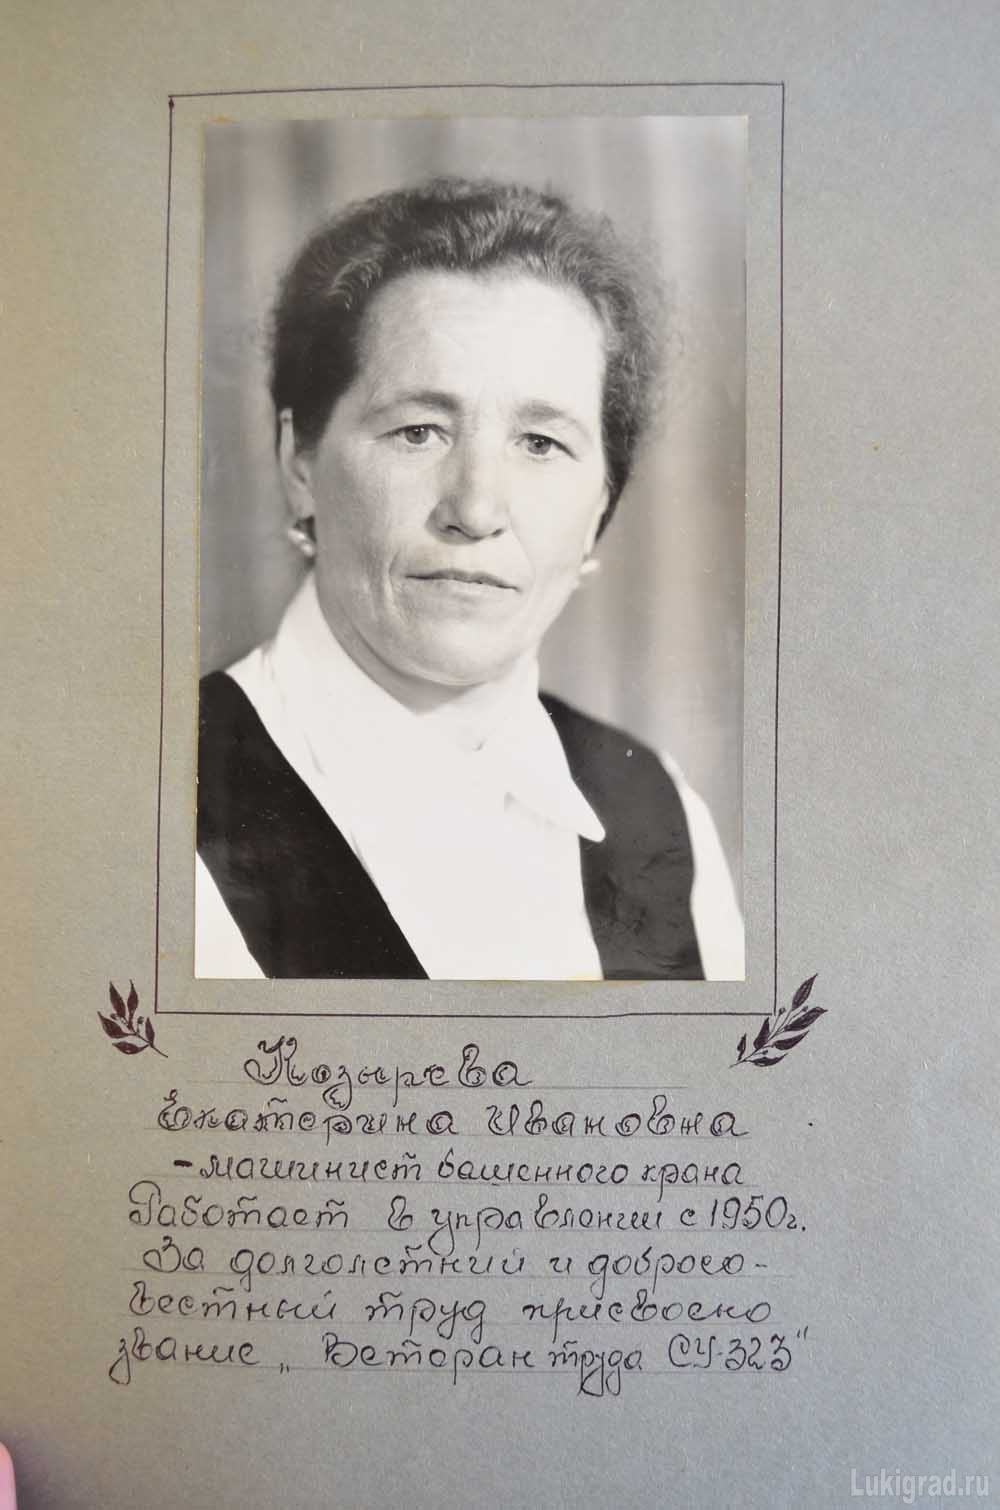 Козырева
Екатерина Ивановна
- машинист башенного крана
Работает в управлении с 1950г.
За долголетний и добросо-
вестный труд присвоено
звание „Ветеран труда СУ-323"
Lukigrad.ru